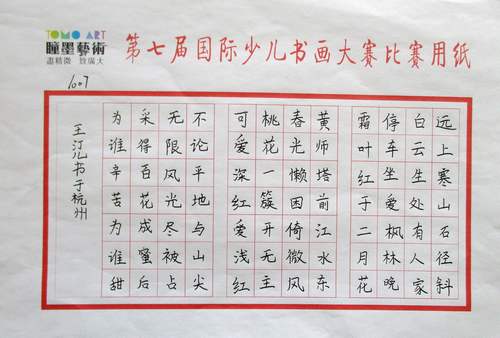 TOMO ART
瞳墨藝術
盡精微 致廣大
第七届国际少儿书画大赛比赛用纸
1007
远上寒山石径斜
白云生处有人家
停车坐爱枫林晚
霜叶红于二月花
黄师塔前江水东
春光懒困倚微风
桃花一簇开无主
可爱深红爱浅红
不论平地与山尖
无限风光尽被占
采得百花成蜜后
为谁辛苦为谁甜
王汀儿书于杭州